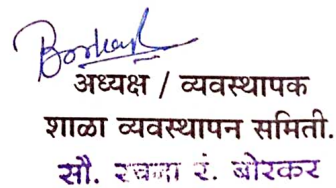 Borkar
अध्यक्ष / व्यवस्थापक
शाळा व्यवस्थापन समिती.
सौ. रं. बोरकर